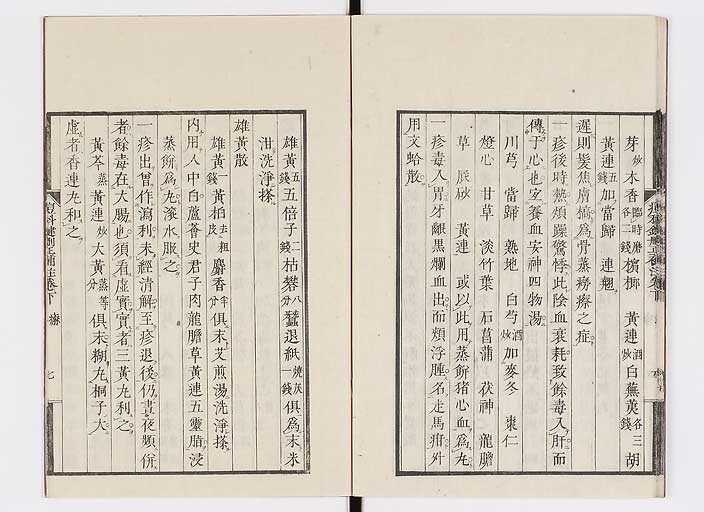 芽炒木香臨時磨各二錢檳榔 黃連酒炒白蕪荑各三錢胡
黃連五錢加當歸 連翹
遲則髮焦膚槁爲骨蒸癆瘵之症
一疹後時熱煩躁驚悸此陰血衰耗致餘毒入肝而
傳于心也宜養血安神四物湯
川芎 當歸 熟地 白芍酒炒加麥冬 棗仁
燈心 甘草 淡竹葉 石菖蒲 茯神 龍膽
草 辰砂 黃連 或以此用蒸餅猪心血爲丸
一疹毒入胃牙齦黑爛血出而頰浮腫名走馬疳外
用文蛤散
雄黃五錢五倍子二錢枯礬八分蠶退紙燒灰一錢俱爲末米
泔洗淨搽
雄黃散
雄黃一錢黃柏去粗皮麝香半分俱末艾煎湯洗淨搽
內用人中白蘆薈史君子肉龍膽草黃連五靈脂浸
蒸餅爲丸滾水服之
一疹出曾作瀉利未經清解至疹退後仍晝夜頻併
者餘毒在大腸也須看虛實實者三黃丸利之
黃芩蒸黃連炒大黃蒸等分俱末糊丸桐子大
虛者香連丸和之
痘科鍵刪正補註卷下 疹 七